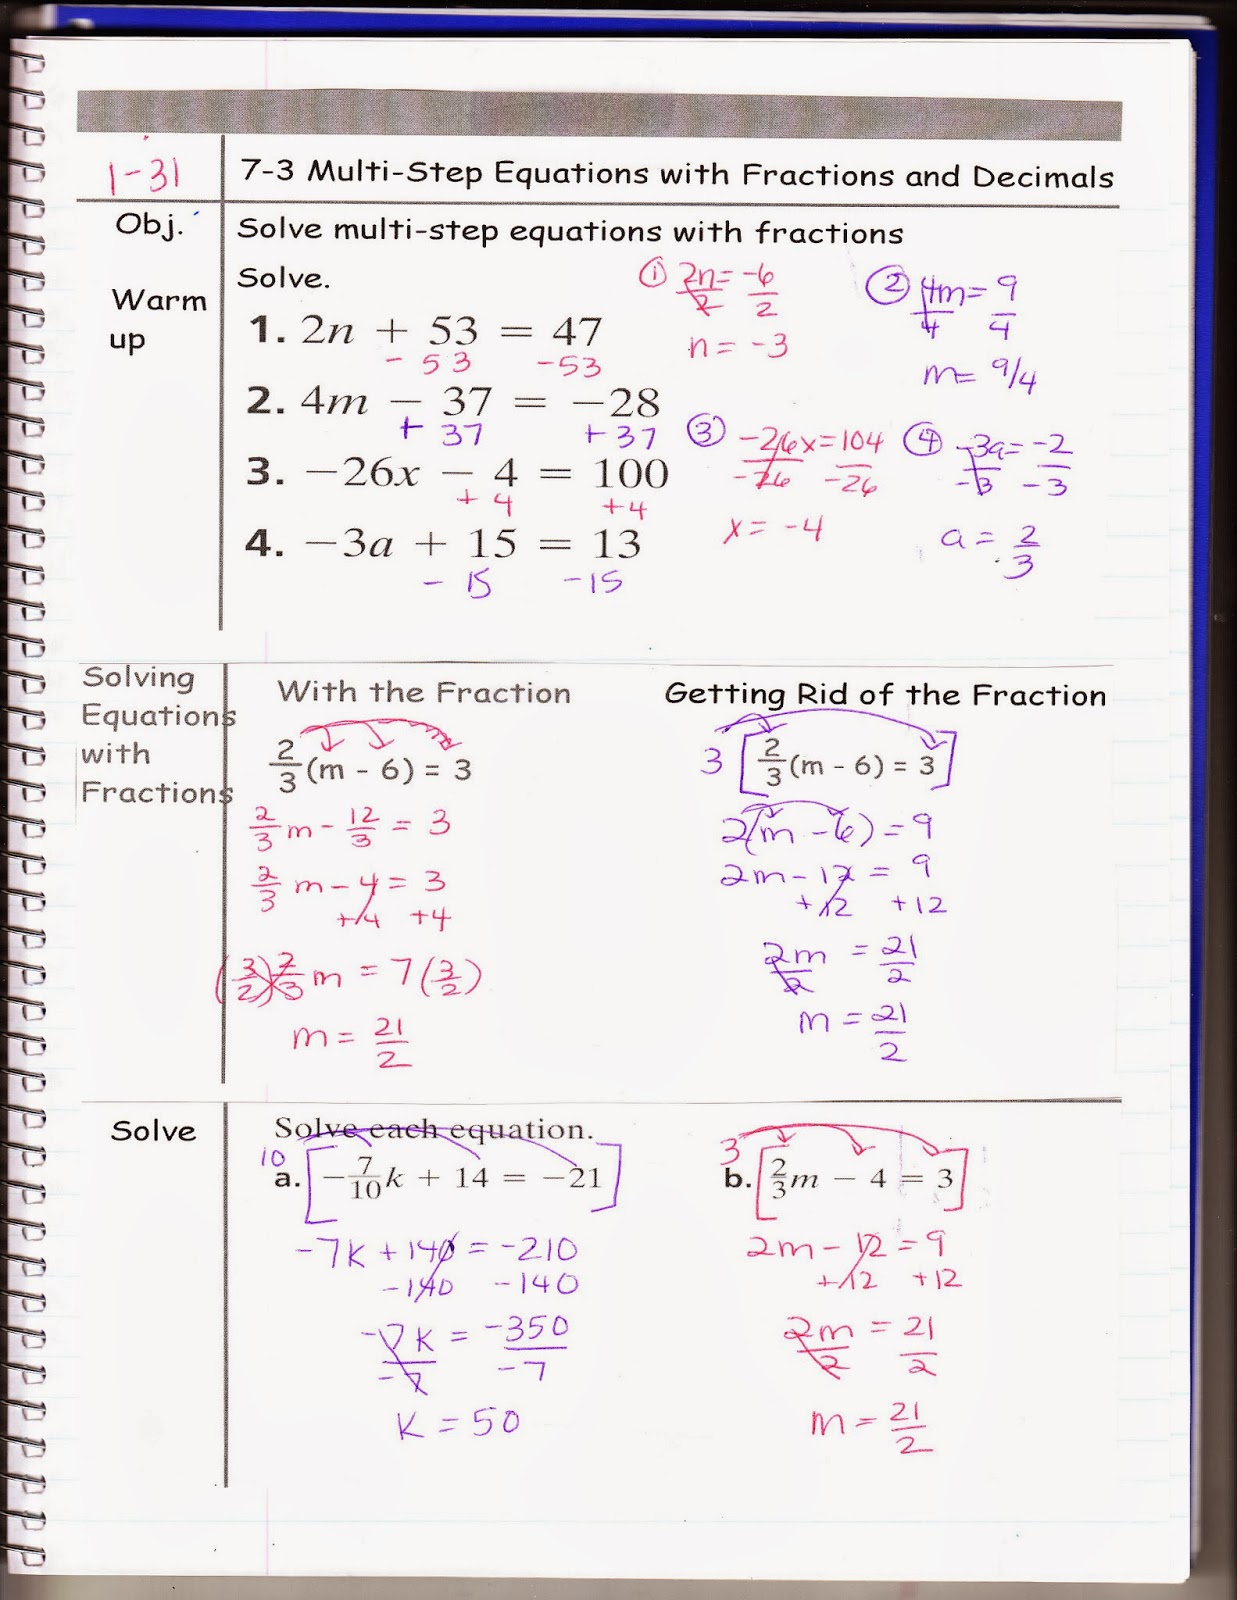 1-31
7-3 Multi-Step Equations with Fractions and Decimals
Obj.
Solve multi-step equations with fractions
Warm up
Solve.
1. 2n + 53 = 47
- 53 -53
2. 4m − 37 = −28
+ 37 +37
3. −26x − 4 = 100
+ 4 +4
4. −3a + 15 = 13
- 15 -15
① 2n/2 = -6/2
n = -3
② 4m/4 = 9/4
m = 9/4
③ -26x/-26 = 104/-26
x = -4
④ -3a/-3 = -2/-3
a = 2/3
Solving
Equations
with
Fractions
With the Fraction
2/3(m - 6) = 3
2/3 m - 12/3 = 3
2/3 m - 4 = 3
+4 +4
(3/2) 2/3 m = 7 (3/2)
m = 21/2
Getting Rid of the Fraction
3 [2/3(m - 6) = 3]
2(m - 6) = 9
2m - 12 = 9
+12 +12
2m/2 = 21/2
m = 21/2
Solve
Solve each equation.
10 a. [−7/10 k + 14 = −21]
-7k + 140 = -210
-140 -140
-7k/-7 = -350/-7
k = 50
3 b. [2/3 m − 4 = 3]
2m - 12 = 9
+12 +12
2m/2 = 21/2
m = 21/2